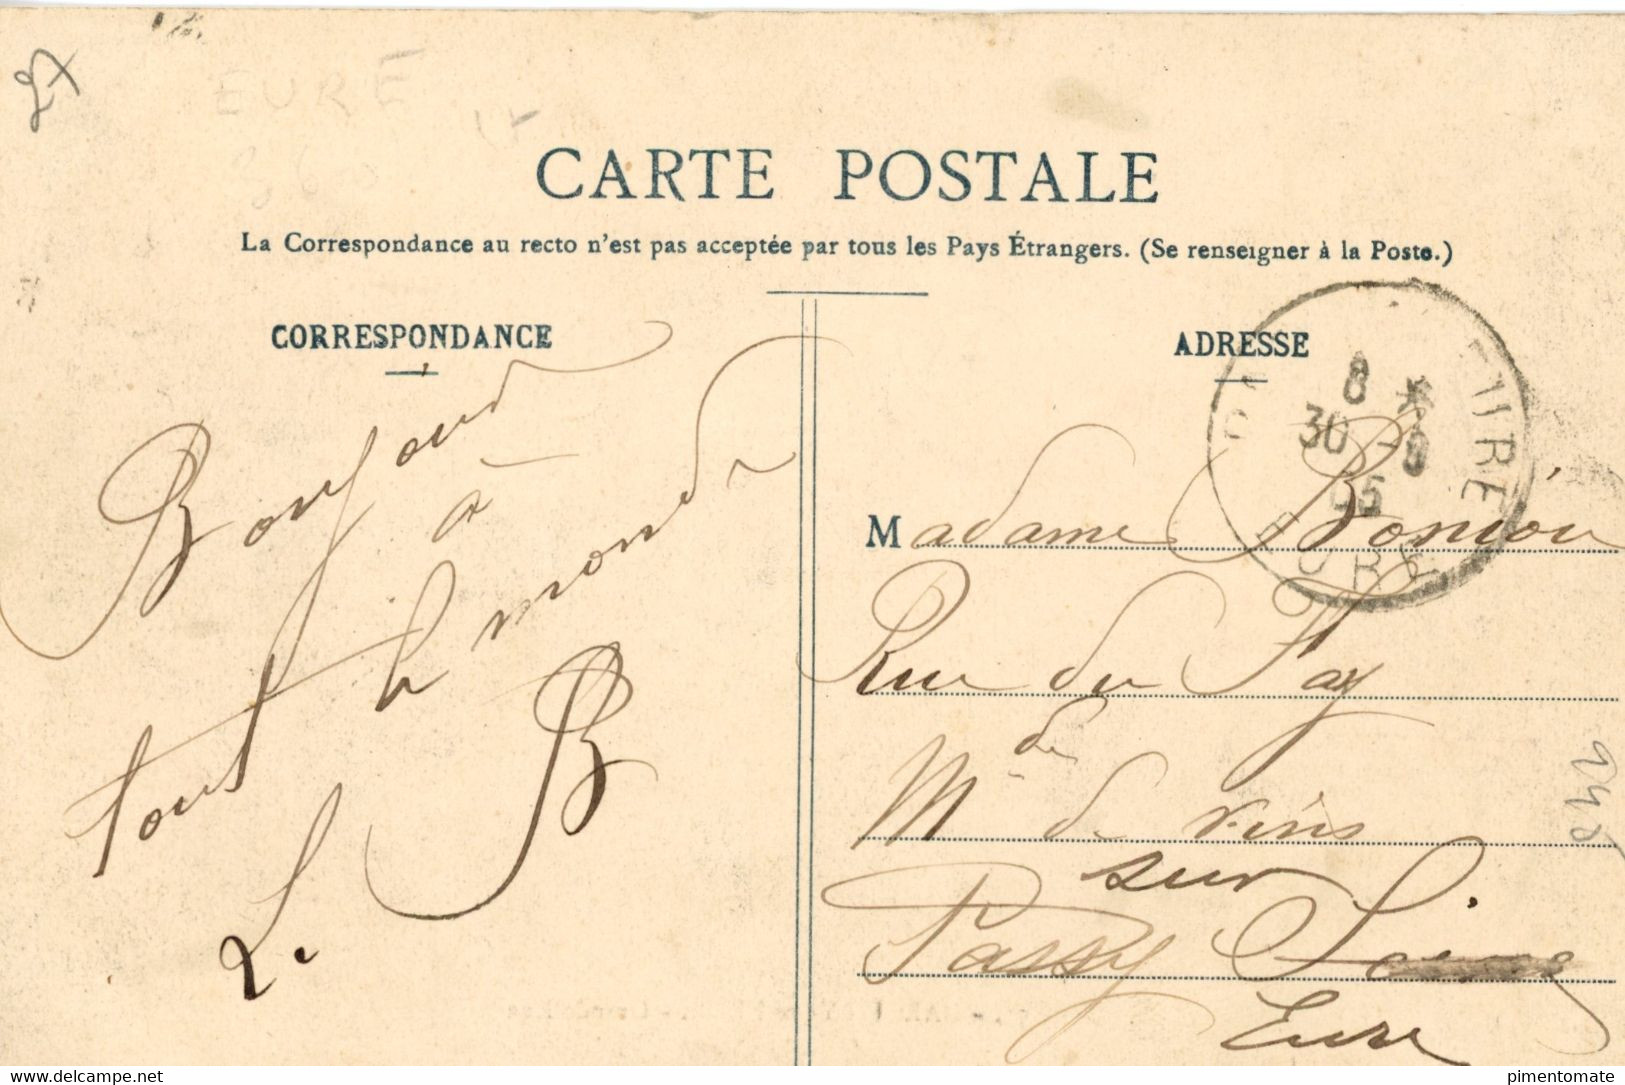 27
EURE
CARTE POSTALE
La Correspondance au recto n'est pas acceptée par tous les Pays Étrangers. (Se renseigner à la Poste.)
CORRESPONDANCE
Bonjour
à
tout le monde
L. B
ADRESSE
8 *
30 - 8
05
EURE
Madame
Rue du Fay
Mde de vins
Passy sur
Eure
https://www.delcampe.net
pimentomate